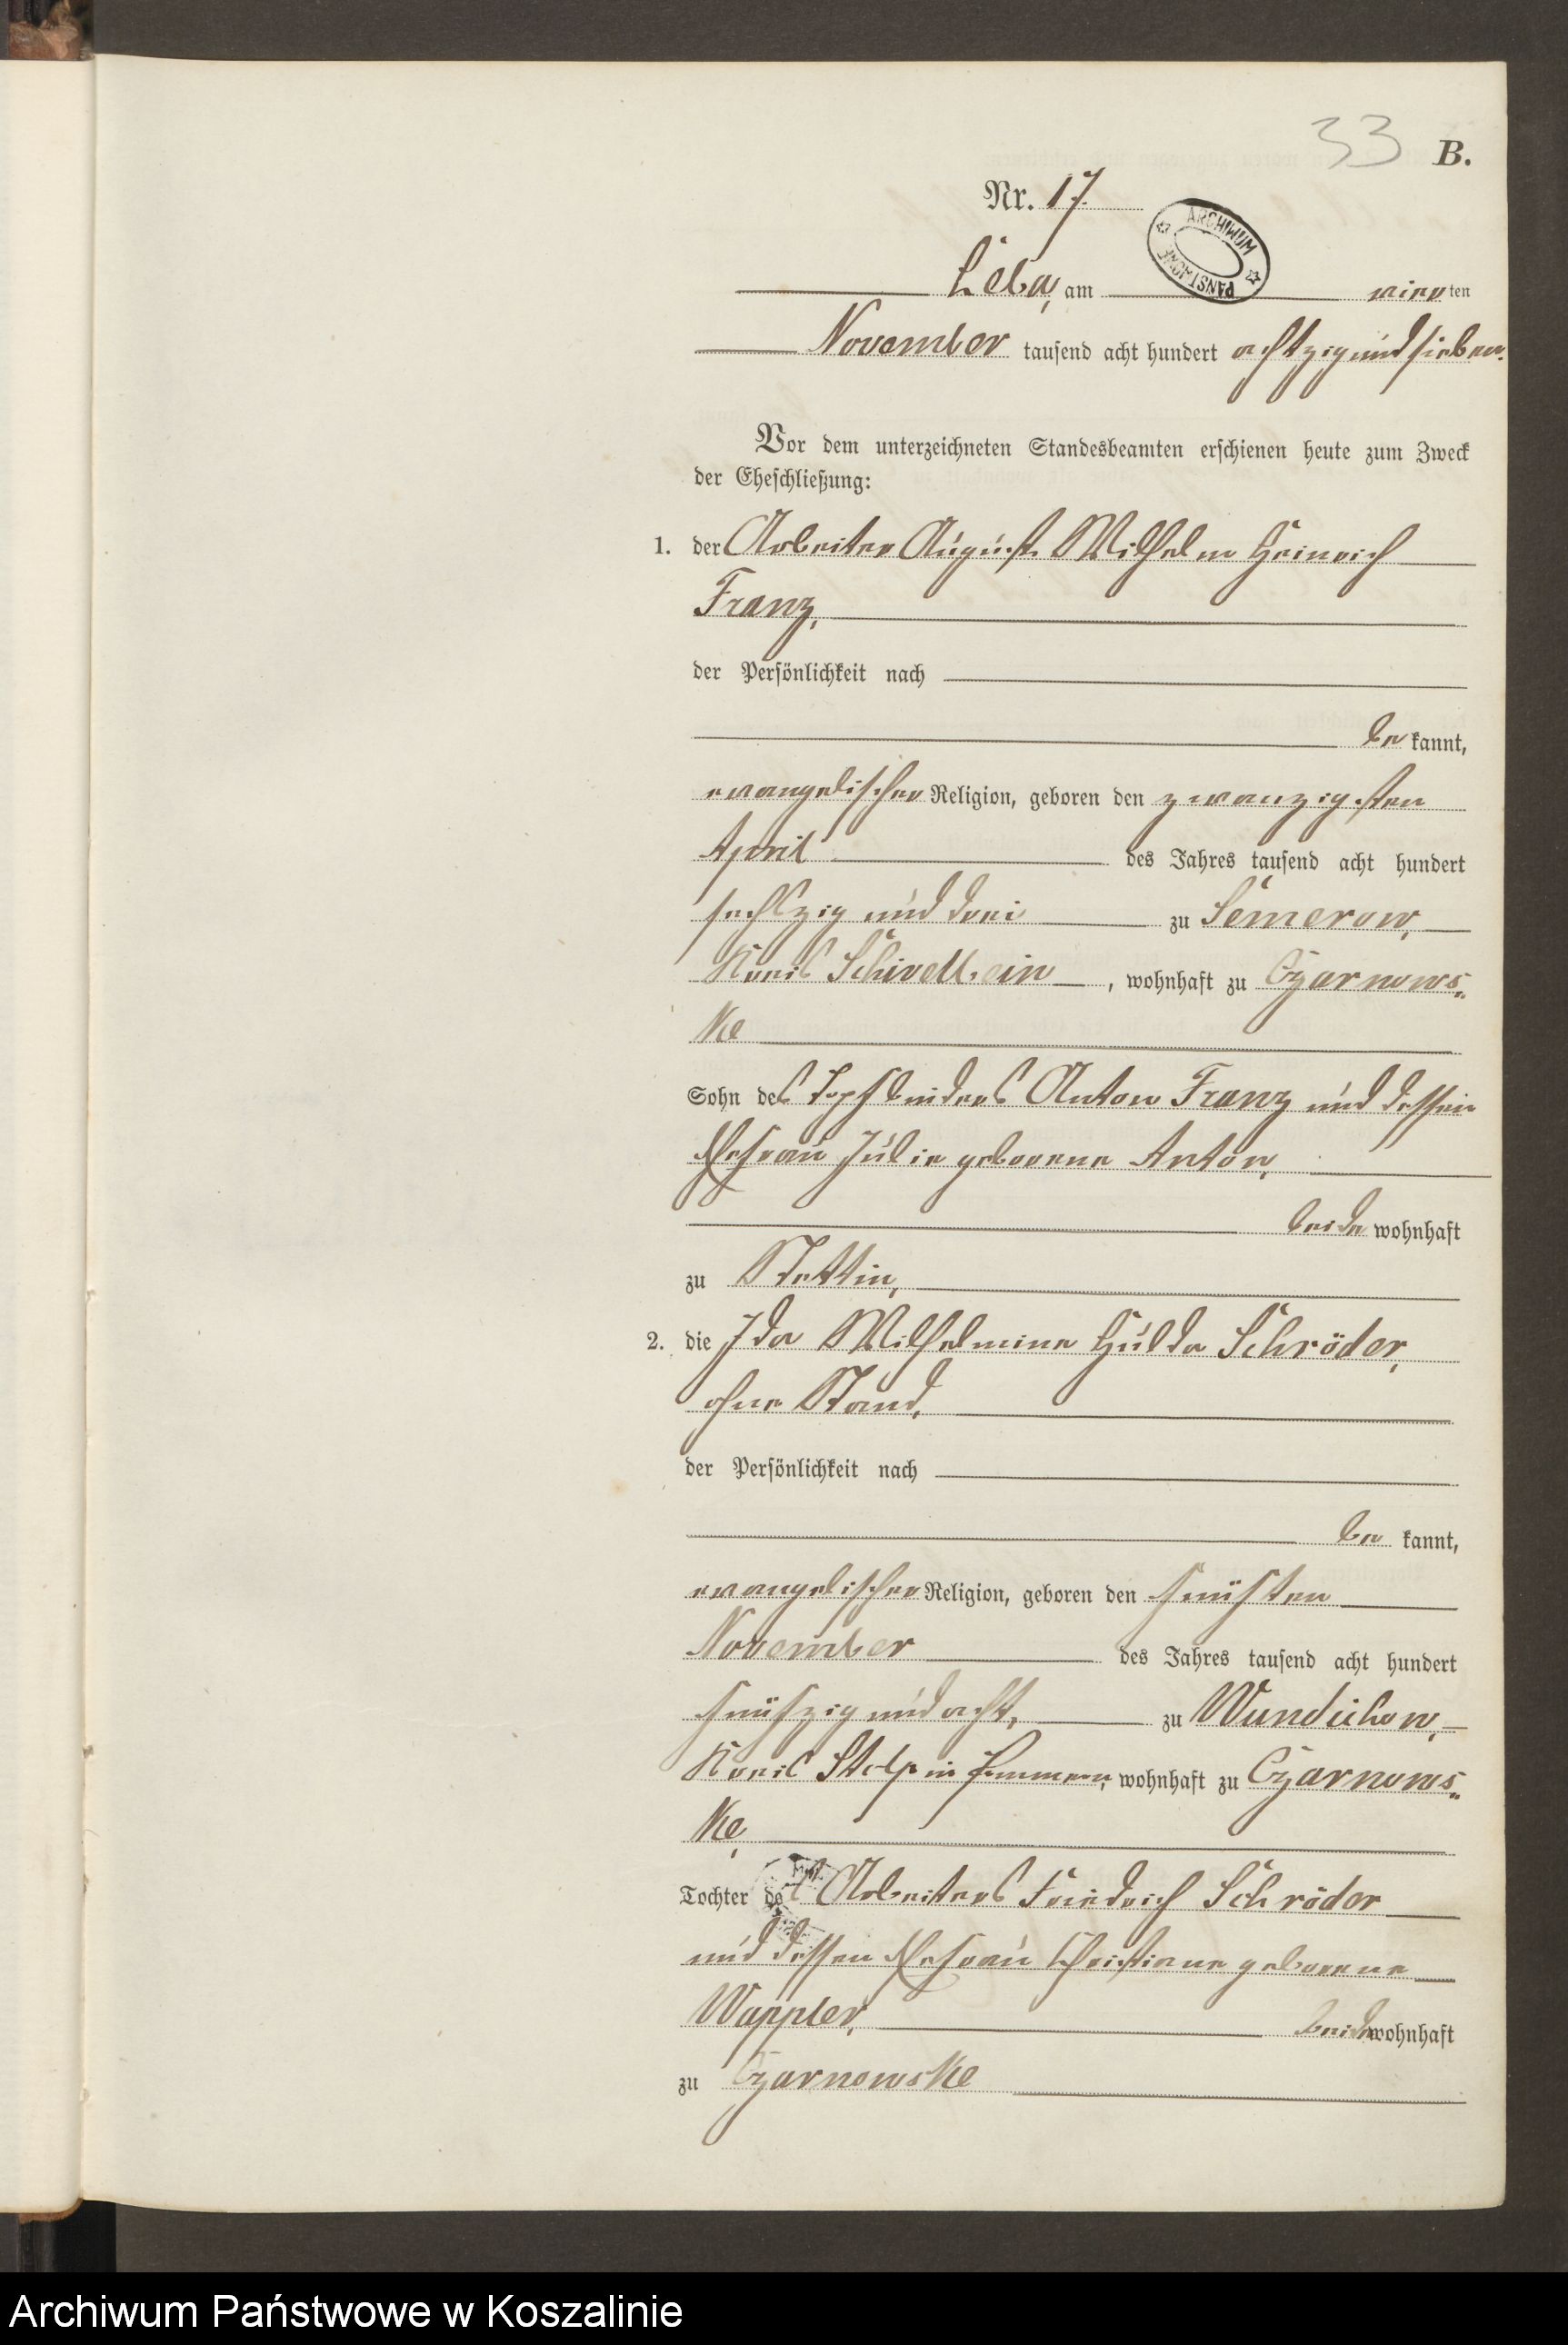 33 B.
Nr. 17.
ARCHIWUM PAŃSTWOWE
Leba, am vierten
November tausend acht hundert achtzig und sieben.
Vor dem unterzeichneten Standesbeamten erschienen heute zum Zweck
der Eheschließung:
1. der Arbeiter August Wilhelm Heinrich
Franz,
der Persönlichkeit nach
be kannt,
evangelischer Religion, geboren den zwanzigsten
April des Jahres tausend acht hundert
sechszig und drei zu Semerow,
Kreis Schivelbein, wohnhaft zu Czarnows-
ke
Sohn des Topfbinders Anton Franz und dessen
Ehefrau Julie geborene Anton,
beide wohnhaft
zu Stettin,
2. die Ida Wilhelmine Hulda Schröder,
ohne Stand,
der Persönlichkeit nach
be kannt,
evangelischer Religion, geboren den fünften
November des Jahres tausend acht hundert
fünfzig und acht, zu Wundichow,
Kreis Stolp in Pommern, wohnhaft zu Czarnows-
ke,
Tochter des Arbeiters Friedrich Schröder
und dessen Ehefrau Christiane geborene
Wappler, beide wohnhaft
zu Czarnowske
Archiwum Państwowe w Koszalinie